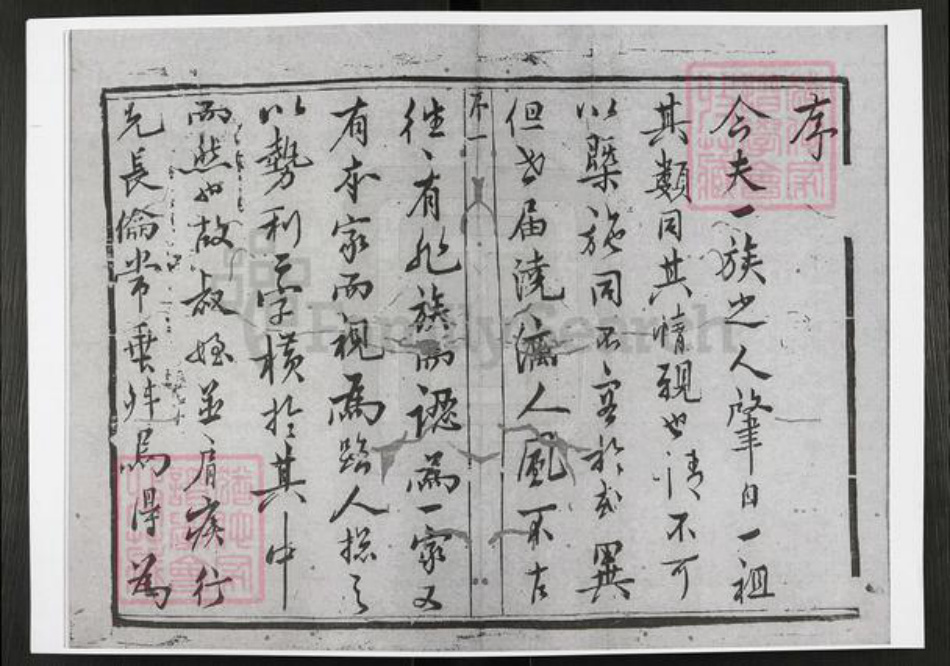 序
今夫一族之人肇自一祖
其類同其情親也情不可
以槩施同不容於或異
但世届澆漓人風不古
序一
往々有非族而認爲一家又
有本家而視爲路人揔之
以勢利二字横於其中
而然也故叔姪並肩疾行
先長倫常乖舛焉得為
FamilySearch